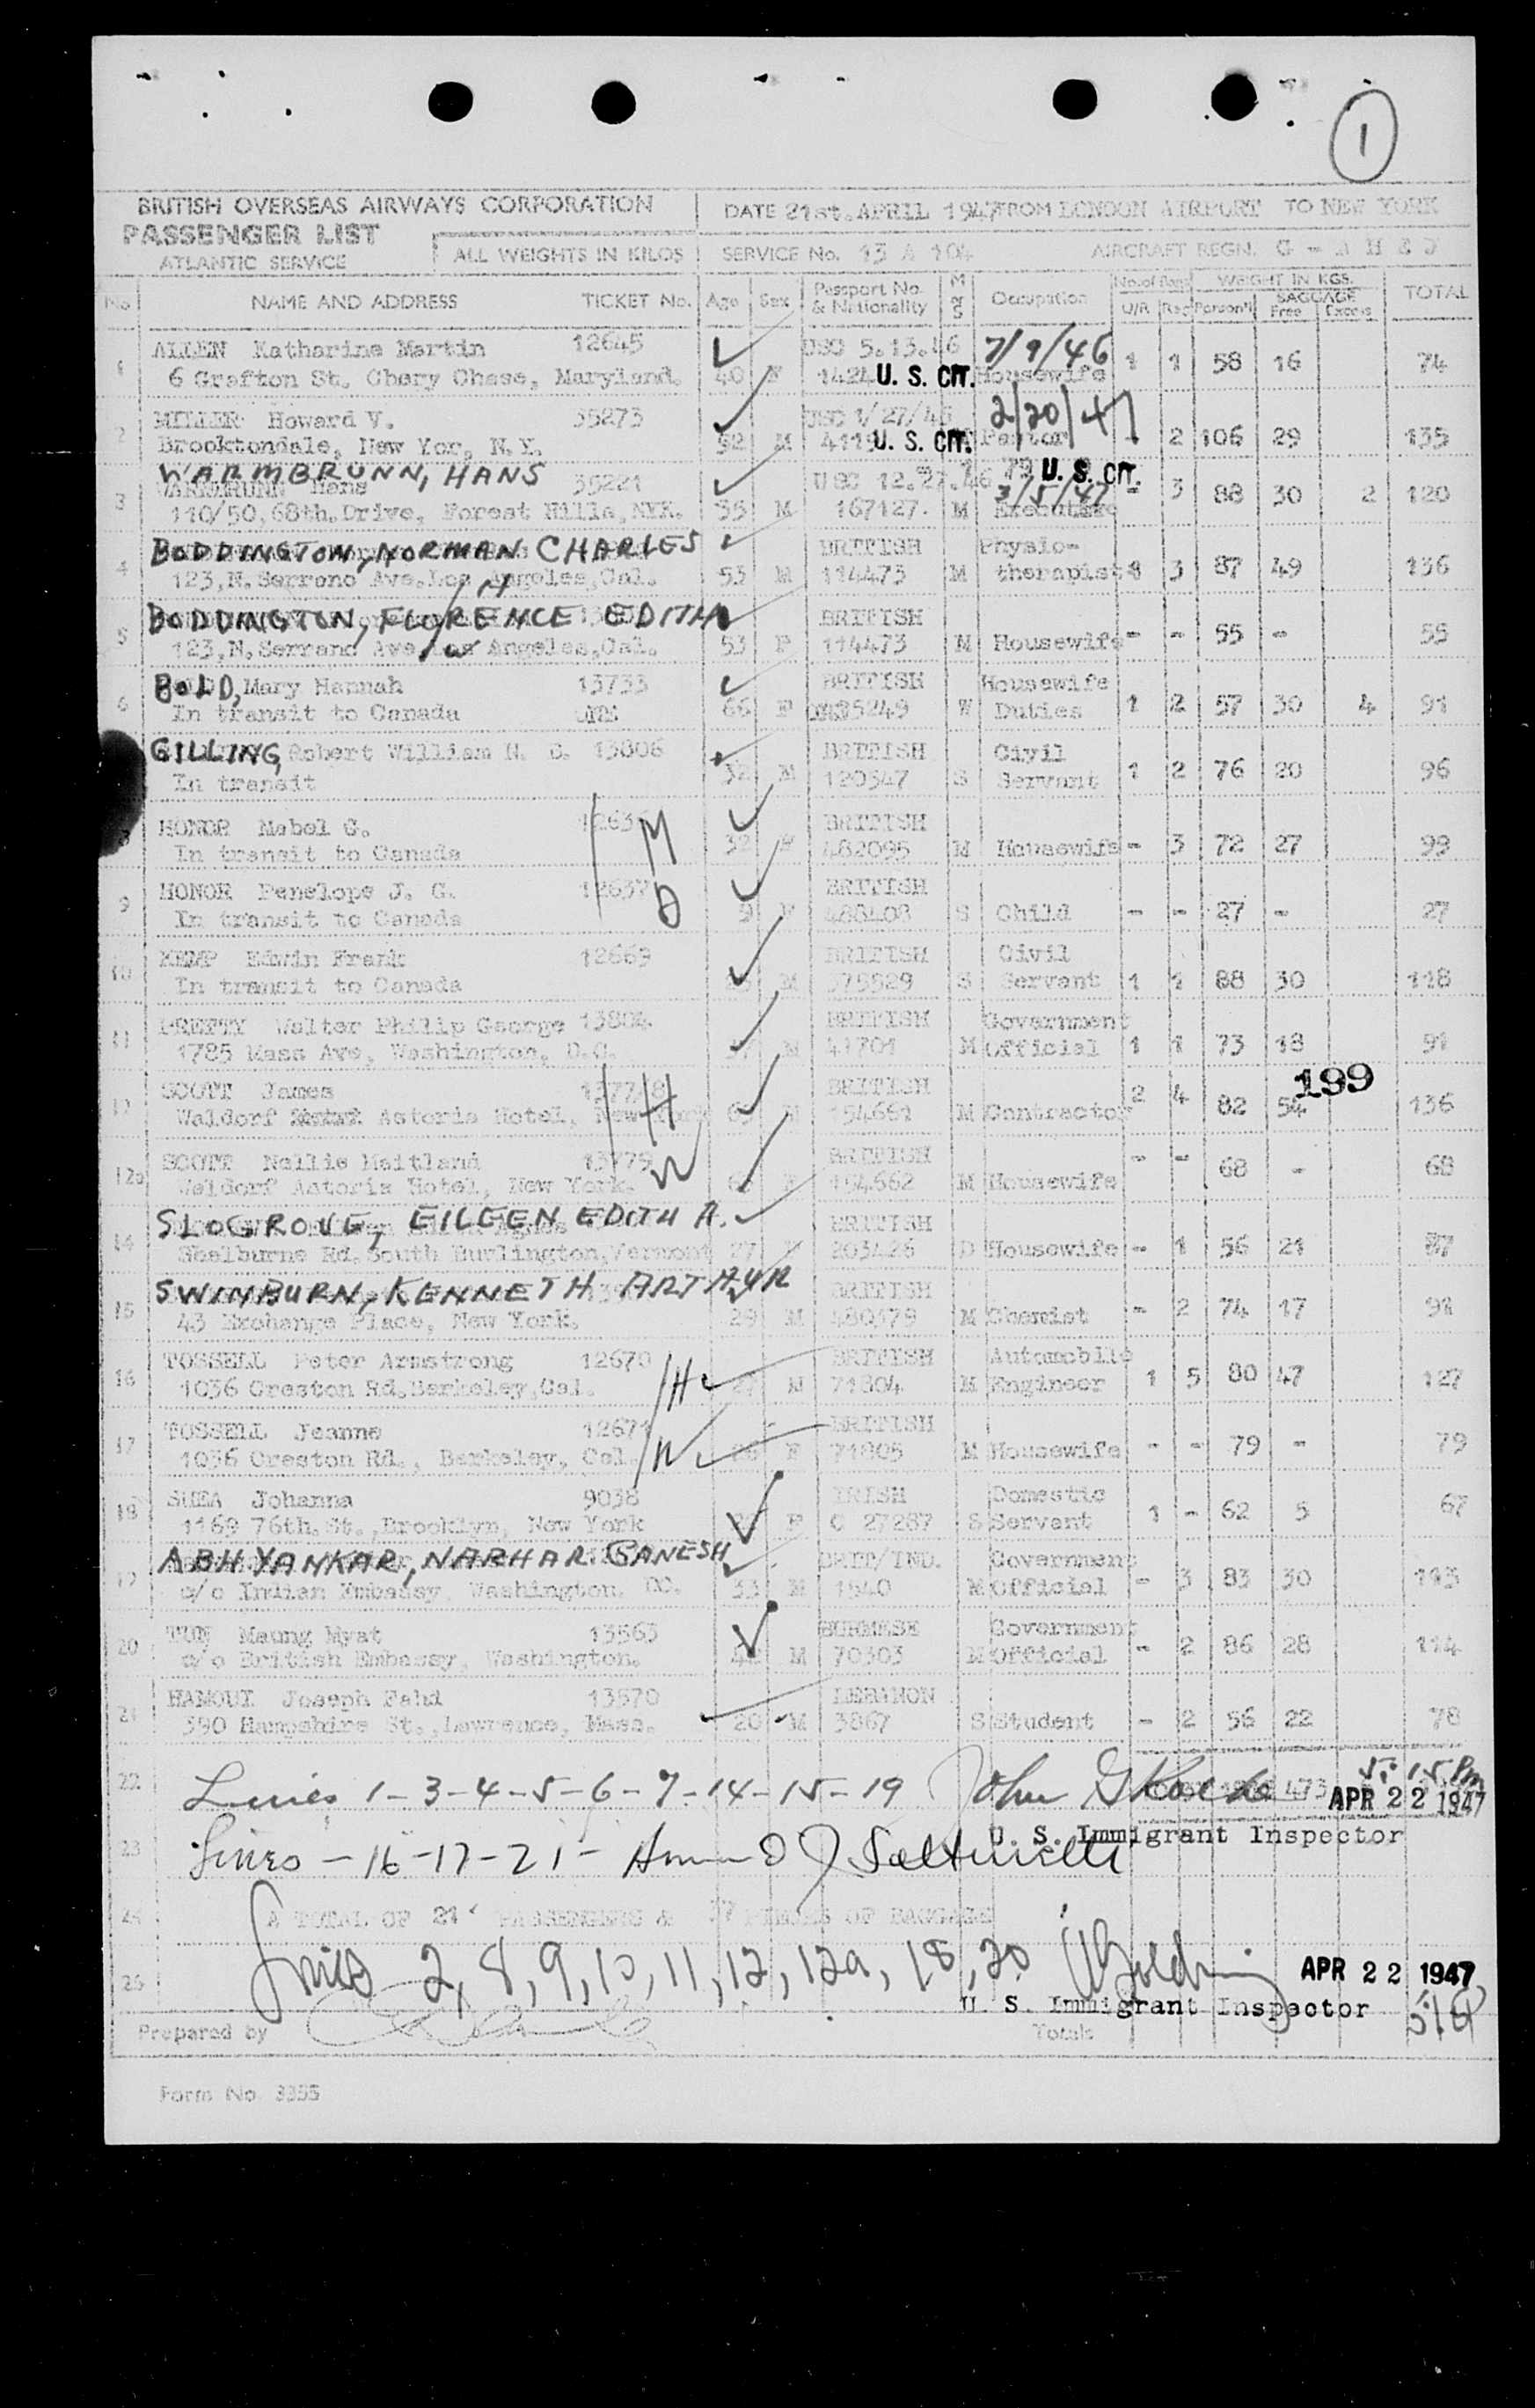 1
BRITISH OVERSEAS AIRWAYS CORPORATION
PASSENGER LIST
ATLANTIC SERVICE
ALL WEIGHTS IN KILOS
DATE 21st. APRIL 1947 FROM LONDON AIRPORT TO NEW YORK
SERVICE No. 13 A 104 AIRCRAFT REGN.
No NAME AND ADDRESS TICKET No. Age Sex Passport No. & Nationality M or S Occupation No. of Bags U/R Reg WEIGHT IN KGS. Person'l BAGGAGE Free Excess TOTAL
1 ALLEN Katharine Martin 12645 USC 5.13.46 7/9/46
6 Grafton St. Chery Chase, Maryland. 40 F U. S. CIT. Housewife 1 1 58 16 74
2 MILLER Howard V. 35273 USC 1/27/46 2/20/47
Brooktondale, New Yor, N.Y. 52 M U. S. CIT. 2 106 29 135
WARMBRUNN, HANS
3 Hans 35221 USC 12.27.46 U. S. CIT. 3/5/47
110/50, 68th. Drive, Forest Hills, NYK. 35 M 167127. M Executive - 3 88 30 2 120
4 BODDINGTON, NORMAN CHARLES BRITISH Physio-
123, N. Serrano Ave. Los Angeles, Cal. 53 M 114473 M therapist 3 87 49 136
H
5 BODDINGTON, FLORENCE EDITH BRITISH
123, N. Serrano Ave Los Angeles, Cal. 53 F 114473 M Housewife - - 55 - 55
W
6 BOLD, Mary Hannah 13733 BRITISH Housewife
In transit to Canada 66 F 35249 W Duties 1 2 57 30 4 91
GILLING, Robert William N. C. 13806 BRITISH Civil
In transit 32 M 120347 S Servant 1 2 76 20 96
8 HONOR Mabel G. M BRITISH
In transit to Canada 32 F 482095 M Housewife - 3 72 27 99
9 HONOR Penelope J. G. 12637 D BRITISH
In transit to Canada 9 F 488408 S Child - - 27 - 27
10 KEMP Edwin Frank 12669 BRITISH Civil
In transit to Canada M 375529 S Servant 1 1 88 30 118
11 PRETTY Walter Philip George 13804 BRITISH Government
1785 Mass Ave, Washington, D.C. 37 M 41701 M Official 1 1 73 18 91
199
12 SCOTT James 13778 H BRITISH 2 4
Waldorf Astoria Hotel, New York M 154661 M Contractor 82 54 136
12a SCOTT Nellie Maitland 13779 W BRITISH - -
Waldorf Astoria Hotel, New York. F 154662 M Housewife 68 - 68
14 SLOGROVE, EILEEN EDITH A. BRITISH
Shelburne Rd. South Burlington, Vermont 27 203426 D Housewife - 1 56 21 87
15 SWINBURN, KENNETH ARTHUR BRITISH
43 Exchange Place, New York. 29 M 480379 M Chemist - 2 74 17 91
16 TOSSELL Peter Armstrong 12670 BRITISH Automobile
1036 Creston Rd. Berkeley, Cal. H 27 M 71804 M Engineer 1 5 80 47 127
17 TOSSELL Jeanne 12671 BRITISH
1036 Creston Rd., Berkeley, Cal. W 26 F 71805 M Housewife - - 79 - 79
18 SHEA Johanna 9038 IRISH Domestic
1169 76th. St., Brooklyn, New York F C 27287 S Servant 1 - 62 5 67
19 ABHYANKAR, NARHAR GANESH BRIT/IND. Government
c/o Indian Embassy, Washington. DC. 33 M 1540 M Official - 3 83 30 113
20 TUN Maung Myat 13563 BURMESE Government
c/o British Embassy, Washington. 42 M 70303 M Official - 2 86 28 114
21 HAMOUI Joseph Fahd 13570 LEBANON
390 Hampshire St., Lawrence, Mass. 20 M 3867 S Student - 2 56 22 78
22 Lines 1-3-4-5-6-7-14-15-19 John G 473 5:15 Pm APR 22 1947
U. S. Immigrant Inspector
23 Lines - 16-17-21 -
24 A TOTAL OF 21 PASSENGERS & 37 PIECES OF BAGGAGE
25 Lines 2, 8, 9, 10, 11, 12, 12a, 18, 20 APR 22 1947
U. S. Immigrant Inspector
Prepared by Totals
Form No. 3355